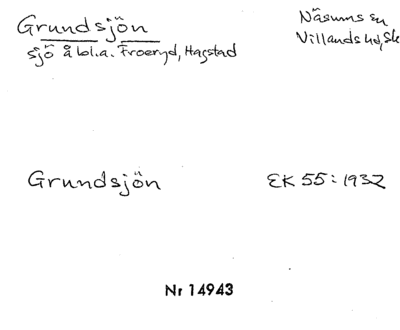 Grundsjön
sjö å bl.a. Froeryd, Hagstad
Näsums sn
Villands hd, Sk
Grundsjön
EK 55: 1932
Nr 14943